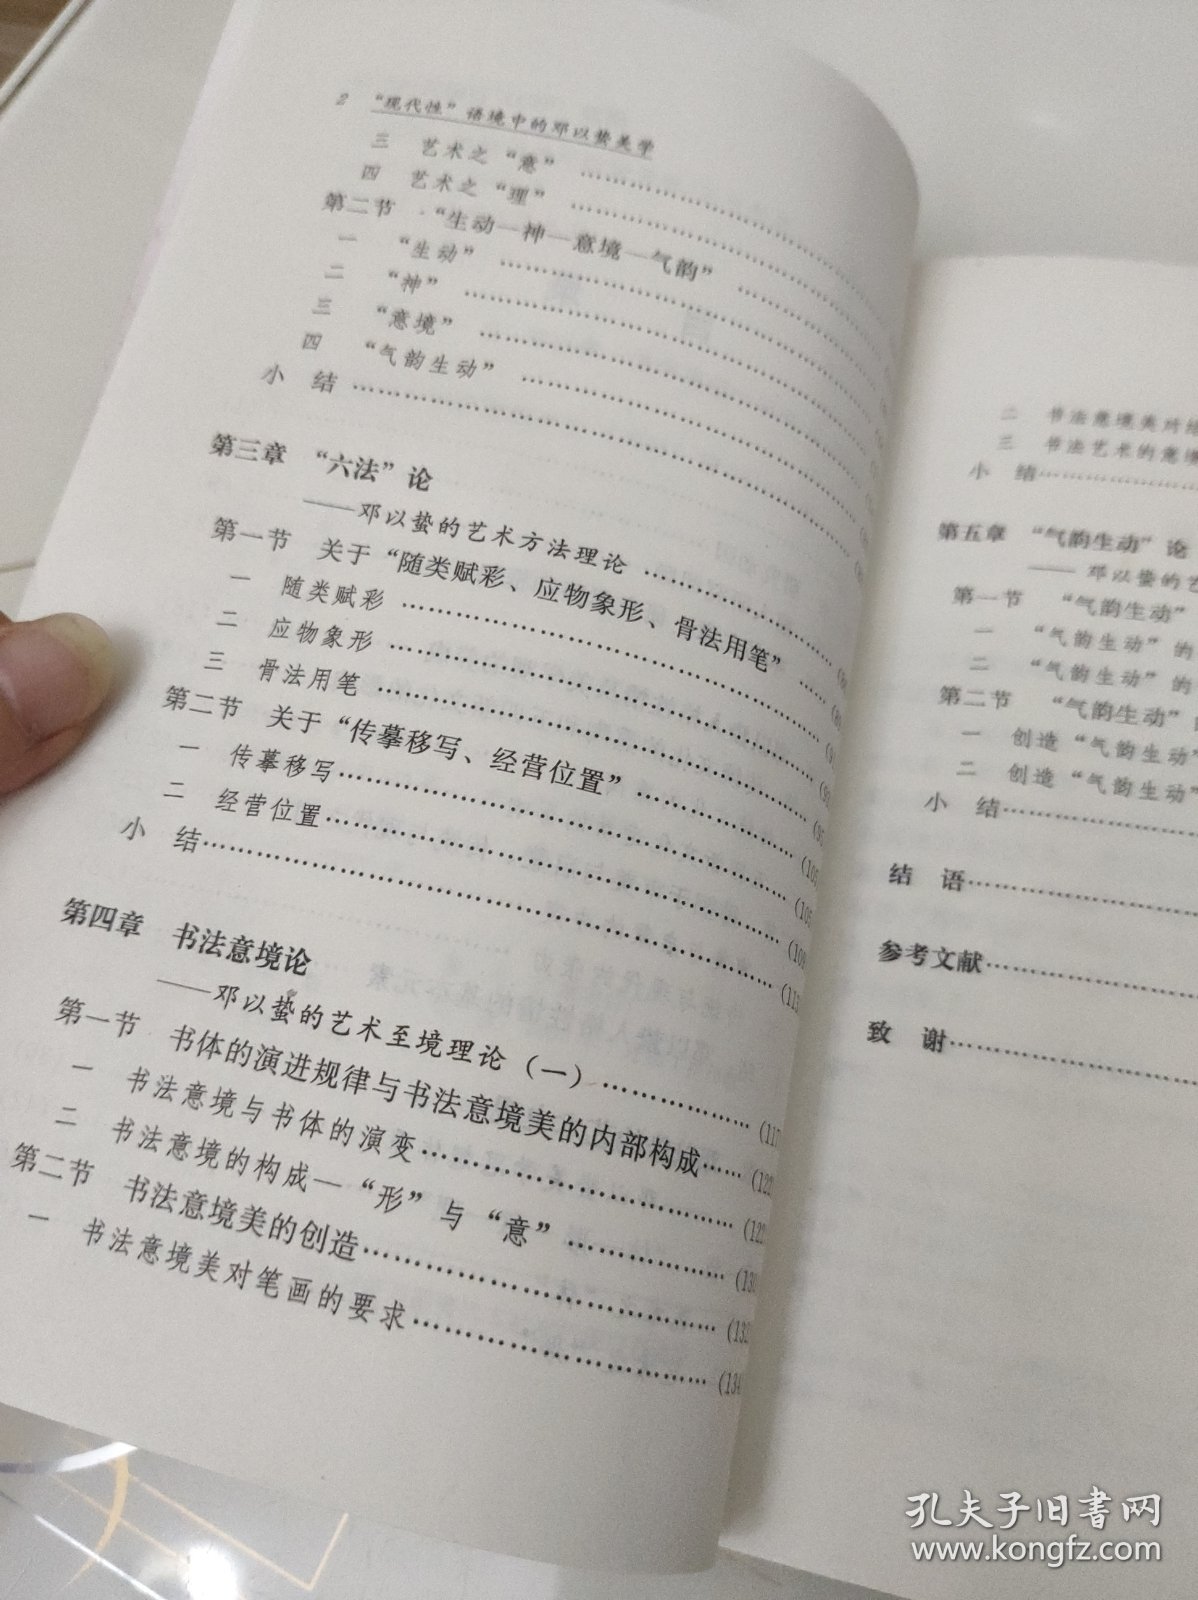 2 “现代性”语境中的邓以蛰美学
三 艺术之“意”……
四 艺术之“理”……
第二节 “生动—神—意境—气韵”……
一 “生动”……
二 “神”……
三 “意境”……
四 “气韵生动”……
小 结……
第三章 “六法”论
——邓以蛰的艺术方法理论……
第一节 关于“随类赋彩、应物象形、骨法用笔”……
一 随类赋彩……
二 应物象形……
三 骨法用笔……
第二节 关于“传摹移写、经营位置”……
一 传摹移写……
二 经营位置……
小 结……
第四章 书法意境论
——邓以蛰的艺术至境理论（一）……(117
第一节 书体的演进规律与书法意境美的内部构成……(122
一 书法意境与书体的演变……(122
二 书法意境的构成—“形”与“意”……(130
第二节 书法意境美的创造……(132
一 书法意境美对笔画的要求……(134
二 书法意境美对结
三 书法艺术的意境
小 结……
第五章 “气韵生动”论
——邓以蛰的艺
第一节 “气韵生动”
一 “气韵生动”的
二 “气韵生动”的
第二节 “气韵生动”
一 创造“气韵生动”
二 创造“气韵生动”
小 结……
结 语……
参考文献……
致 谢……
孔夫子旧书网
www.kongfz.com